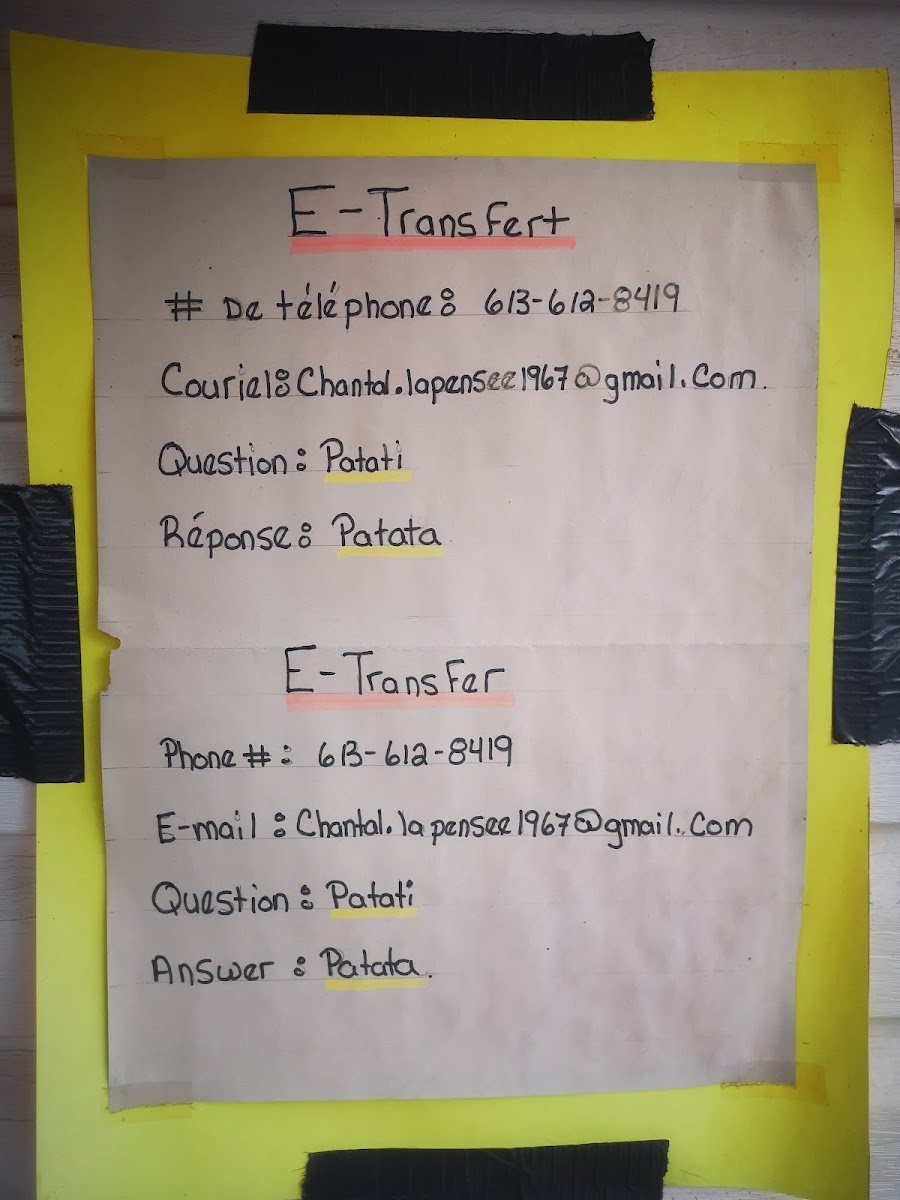 E-Transfert
# De téléphone: 613-612-8419
Couriel: Chantal.lapensee1967@gmail.Com.
Question: Patati
Réponse: Patata
E-Transfer
Phone #: 613-612-8419
E-mail: Chantal.lapensee1967@gmail.Com
Question: Patati
Answer: Patata.